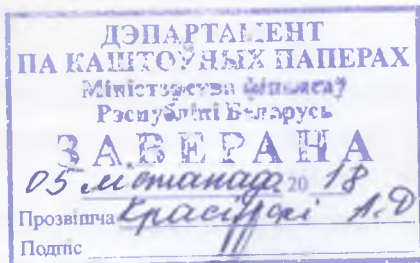 ДЭПАРТАМЕНТ
ПА КАШТОЎНЫХ ПАПЕРАХ
Міністэрства фінансаў
Рэспублікі Беларусь
ЗАВЕРАНА
05 лютага 20 18
Прозвішча А.
Подпіс